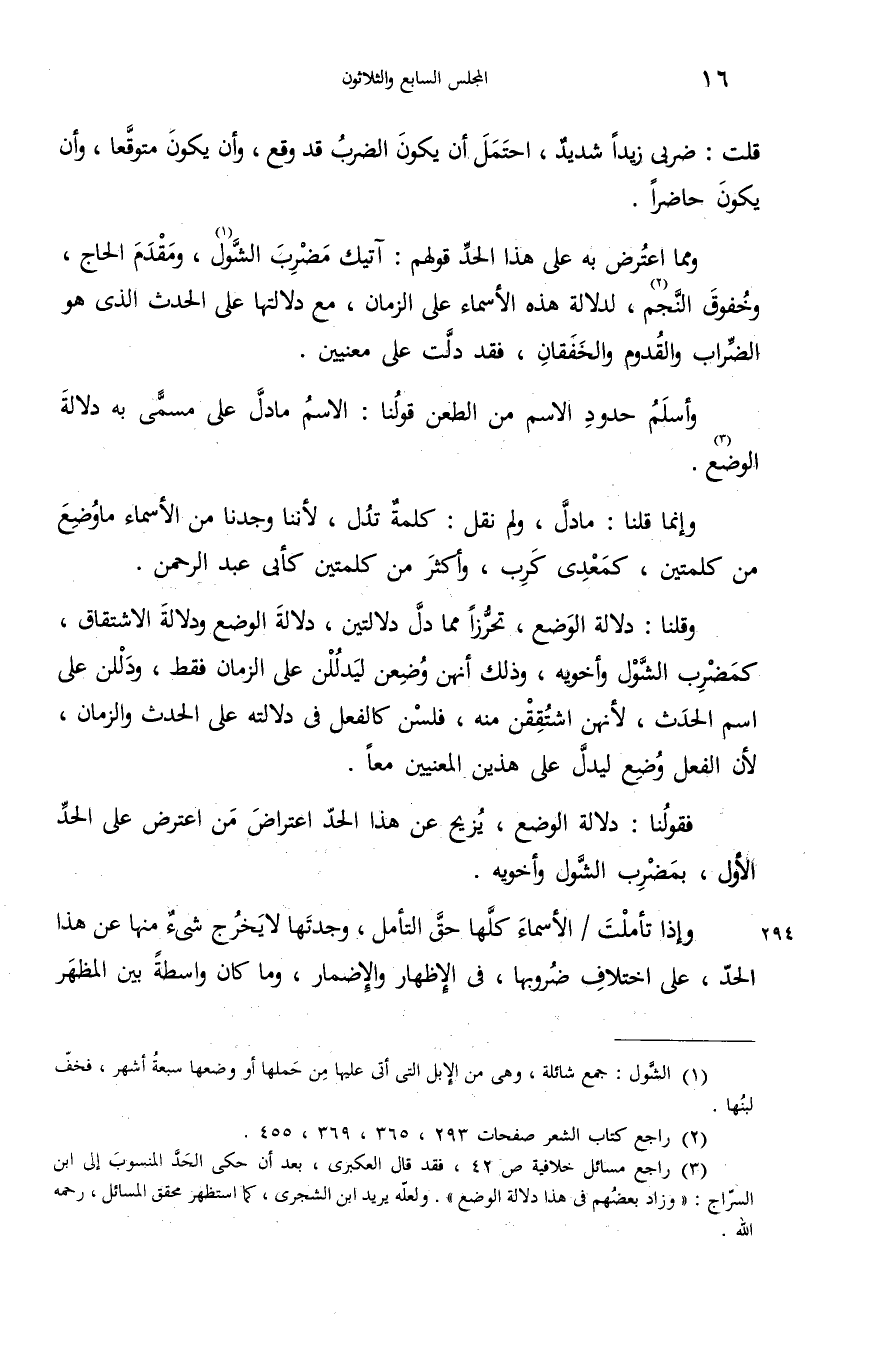 ١٦ المجلس السابع والثلاثون
قلت : ضربى زيداً شديدٌ ، احتَمَلَ أن يكونَ الضربُ قد وقع ، وأن يكونَ متوقَّعا ، وأن
يكونَ حاضراً .
ومما اعتُرض به على هذا الحدِّ قولهم : آتيك مَضْرِبَ الشَّوْل (١) ، ومَقْدَمَ الحاج ،
وخُفوقَ النَّجم (٢) ، لدلالة هذه الأسماء على الزمان ، مع دلالتها على الحدث الذى هو
الضِّراب والقُدوم والخَفَقانِ ، فقد دلَّت على معنيين .
وأسلَمُ حدودِ الاسم من الطعن قولُنا : الاسمُ مادلَّ على مسمًّى به دلالةَ
الوضع (٣) .
وإنما قلنا : مادلَّ ، ولم نقل : كلمةٌ تدُل ، لأننا وجدنا من الأسماء ماوُضِعَ
من كلمتين ، كمَعْدِى كَرِب ، وأكثرَ من كلمتين كأبى عبد الرحمن .
وقلنا : دلالة الوَضع ، تحرُّزاً مما دلَّ دلالتين ، دلالةَ الوضع ودلالةَ الاشتقاق ،
كمَضْرِب الشَّوْل وأخويه ، وذلك أنهن وُضِعن ليَدلُلْن على الزمان فقط ، ودَلْلن على
اسم الحَدَث ، لأنهن اشتُقِقْن منه ، فلسْن كالفعل فى دلالته على الحدث والزمان ،
لأن الفعل وُضِع ليدلَّ على هذين المعنيين معاً .
فقولُنا : دلالة الوضع ، يُزيح عن هذا الحدّ اعتراضَ مَن اعترض على الحدِّ
الأول ، بمَضْرِب الشَّول وأخويه .
٢٩٤ وإذا تأملْتَ / الأسماءَ كلَّها حقَّ التأمل ، وجدتَها لايَخرُج شىءٌ منها عن هذا
الحدّ ، على اختلافِ ضُروبها ، فى الإظهار والإضمار ، وما كان واسطةً بين المظهَر
(١) الشَّول : جمع شائلة ، وهى من الإبل التى أتى عليها مِن حَملها أو وضعها سبعةُ أشهر ، فخفّ
لبنُها .
(٢) راجع كتاب الشعر صفحات ٢٩٣ ، ٣٦٥ ، ٣٦٩ ، ٤٥٥ .
(٣) راجع مسائل خلافية ص ٤٢ ، فقد قال العكبرى ، بعد أن حكى الحَدَّ المنسوبَ إلى ابن
السرّاج : « وزاد بعضُهم فى هذا دلالة الوضع » . ولعلّه يريد ابن الشجرى ، كما استظهر محقق المسائل ، رحمه
الله .